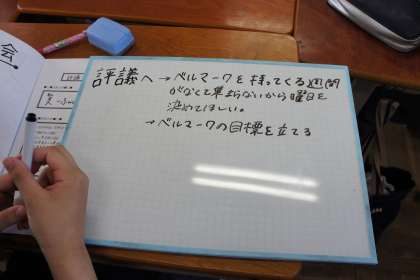 会
評議へ→ベルマークを持ってくる週間
がなくて集まらないから曜日を
決めてほしい。
→ベルマークの目標を立てる